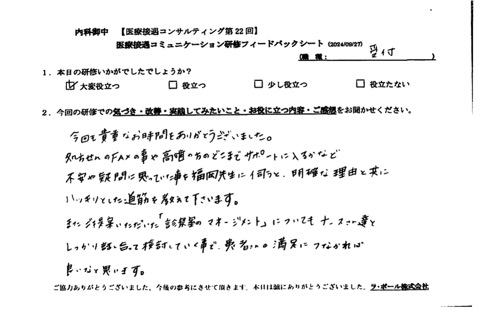 内科御中 【医療接遇コンサルティング第22回】
医療接遇コミュニケーション研修フィードバックシート (2024/09/27)
(職種: 受付 )
1．本日の研修いかがでしたでしょうか？
☑ 大変役立つ □ 役立つ □ 少し役立つ □ 役立たない
2．今回の研修での気づき・改善・実践してみたいこと・お役に立つ内容・ご感想をお聞かせください。
今回も貴重なお時間をありがとうございました。
処方せんのFAXの事や高齢の方のどこまでサポートに入るかなど
不安や疑問に思っていた事を福岡先生に伺うと、明確な理由と共に
ハッキリとした道筋を教えて下さいます。
またご提案いただいた「診察室のマネージメント」についてもナースさん達と
しっかり話し合って検討していく事で、患者さんの満足につながれば
良いなと思います。
ご協力ありがとうございました。今後の参考にさせて頂きます。本日は誠にありがとうございました。ラ・ポール株式会社